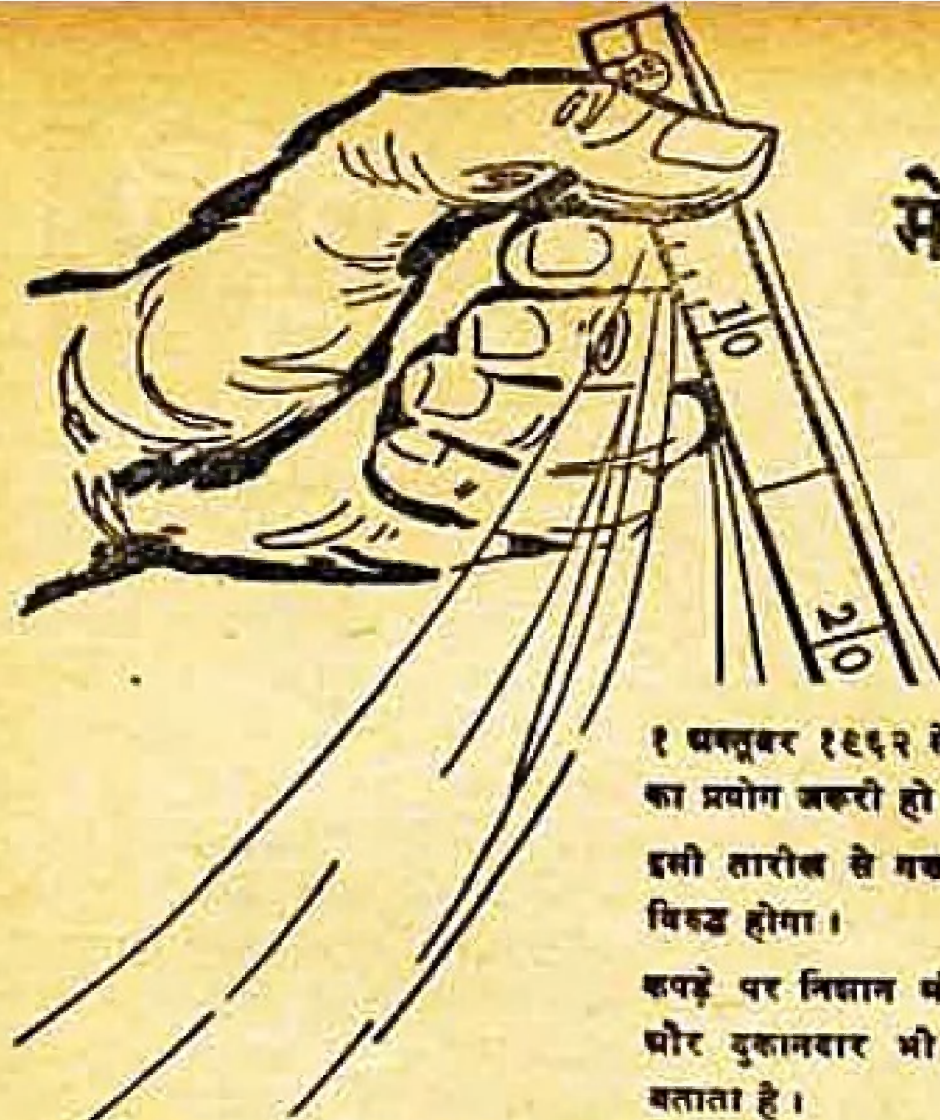 मे
10
20
१ अक्तूबर १९६२ से
का प्रयोग जरूरी हो
इसी तारीख से गज
विरुद्ध होगा।
कपड़े पर निशान भी
और दुकानदार भी
बताता है।